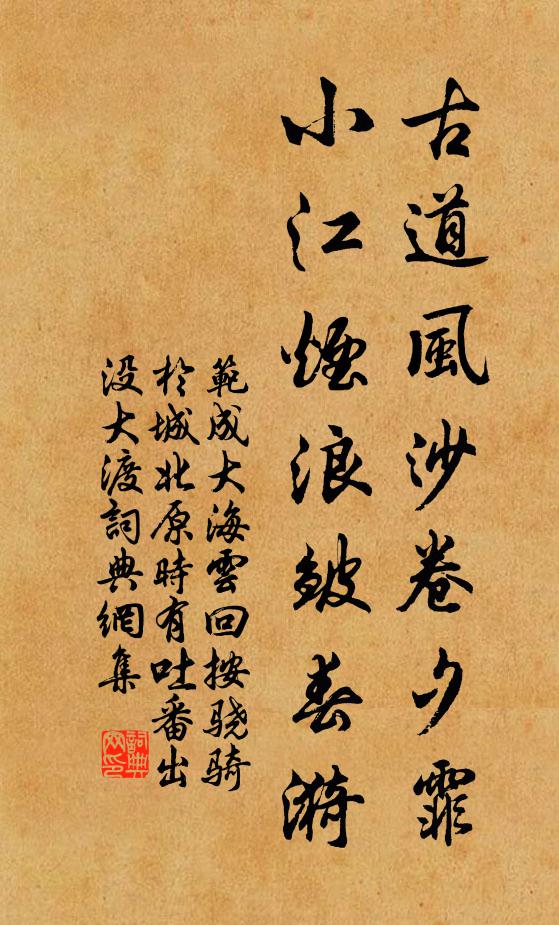 古道風沙卷夕霏
小江煙浪皴春漪
範成大海雲回按驍騎
於城北原時有吐番出
沒大渡詞典網集
詞典網印